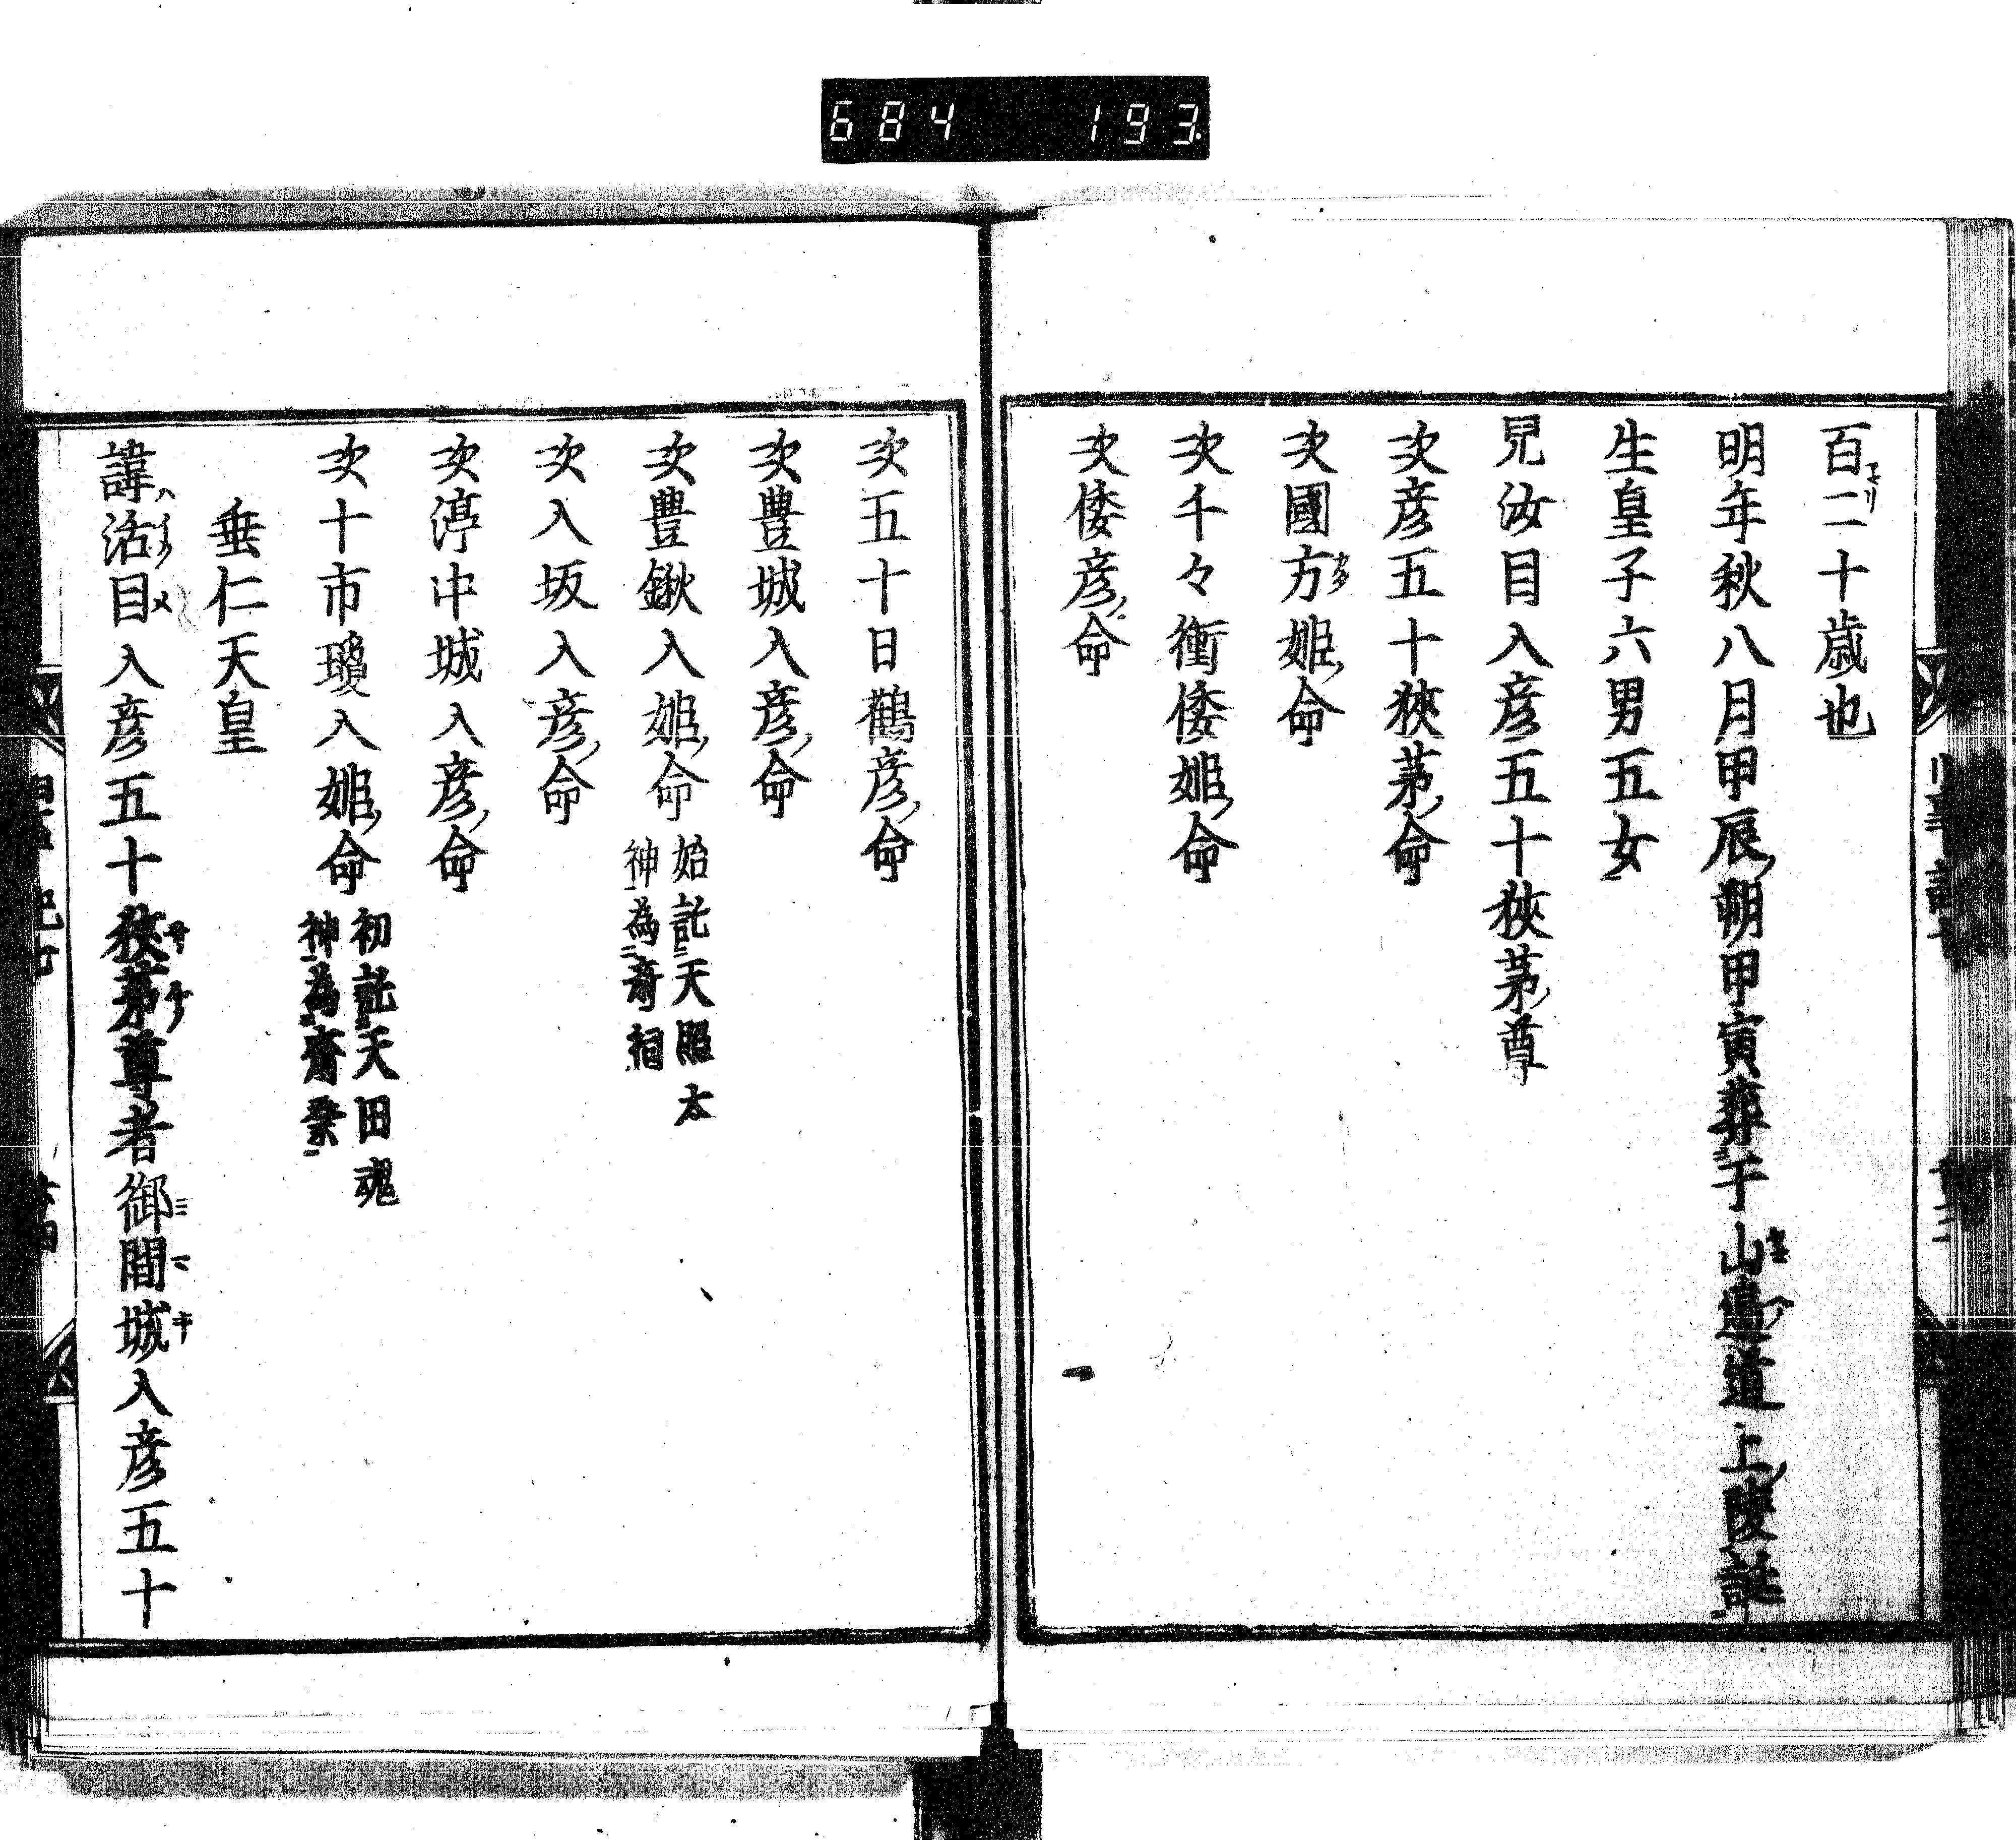 684 193.
百二十歳也
明年秋八月甲辰朔甲寅葬于山邉道上陵誕
生皇子六男五女
兒汝目入彦五十狹茅尊
次彦五十狹茅命
次國方姫命
次千々衝倭姫命
次倭彦命
次五十日鶴彦命
次豊城入彦命
次豊鍬入姫命 始託天照太
神為斎祠
次入坂入彦命
次渟中城入彦命
次十市瓊入姫命 初託天田魂
神為齋祭
垂仁天皇
諱活目入彦五十狹茅尊者御間城入彦五十